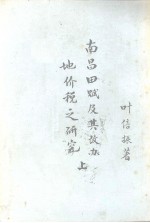 南昌田赋及其改办
地价税之研究
上
叶倍振著